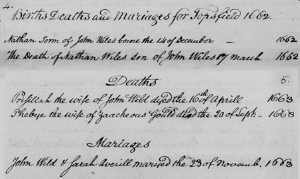 4.
Births Deaths and Mariages for Topsfield 1662.
Nathan Sonn of John Wiles borne the 14 of December — 1662
The Death of Nathan Wiles son of John Wiles 17 march 1662
Deaths 5.
Prissillah the wife of John Wild dyed the 16th of Aprill 1663
Phebye the wife of Zaccheous dyed the 20 of Septr — 1663
Mariages
John Wild & Sarah Averill maried the 23 of Novemb. 1663